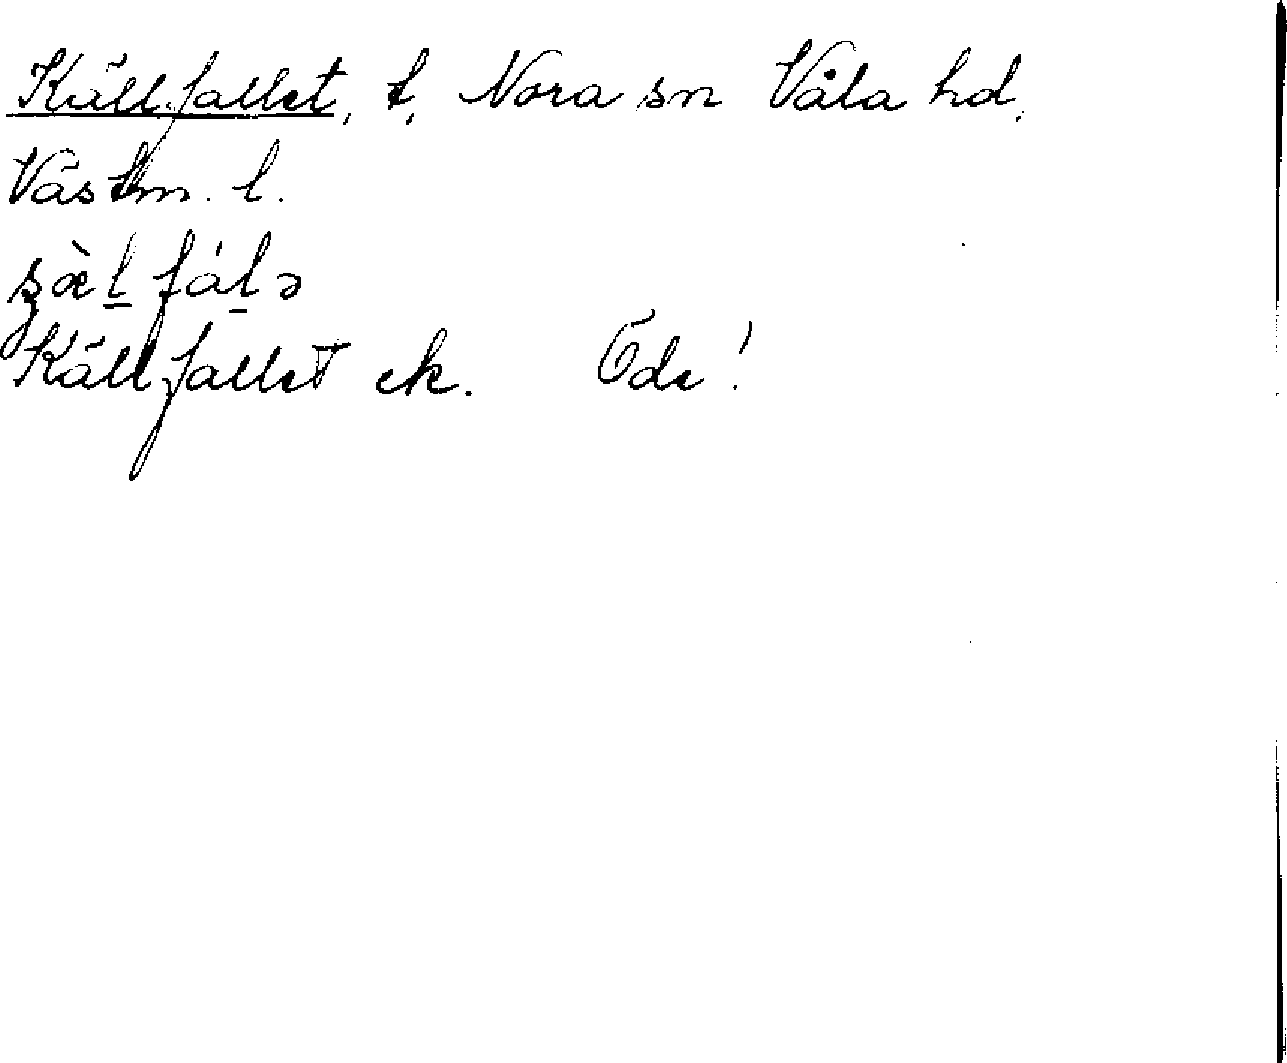 Källfallet, t, Nora sn Våla hd,
Västm. l.
ʂæ̀l̠ fál̠ə
Källfallet ek. Öde!